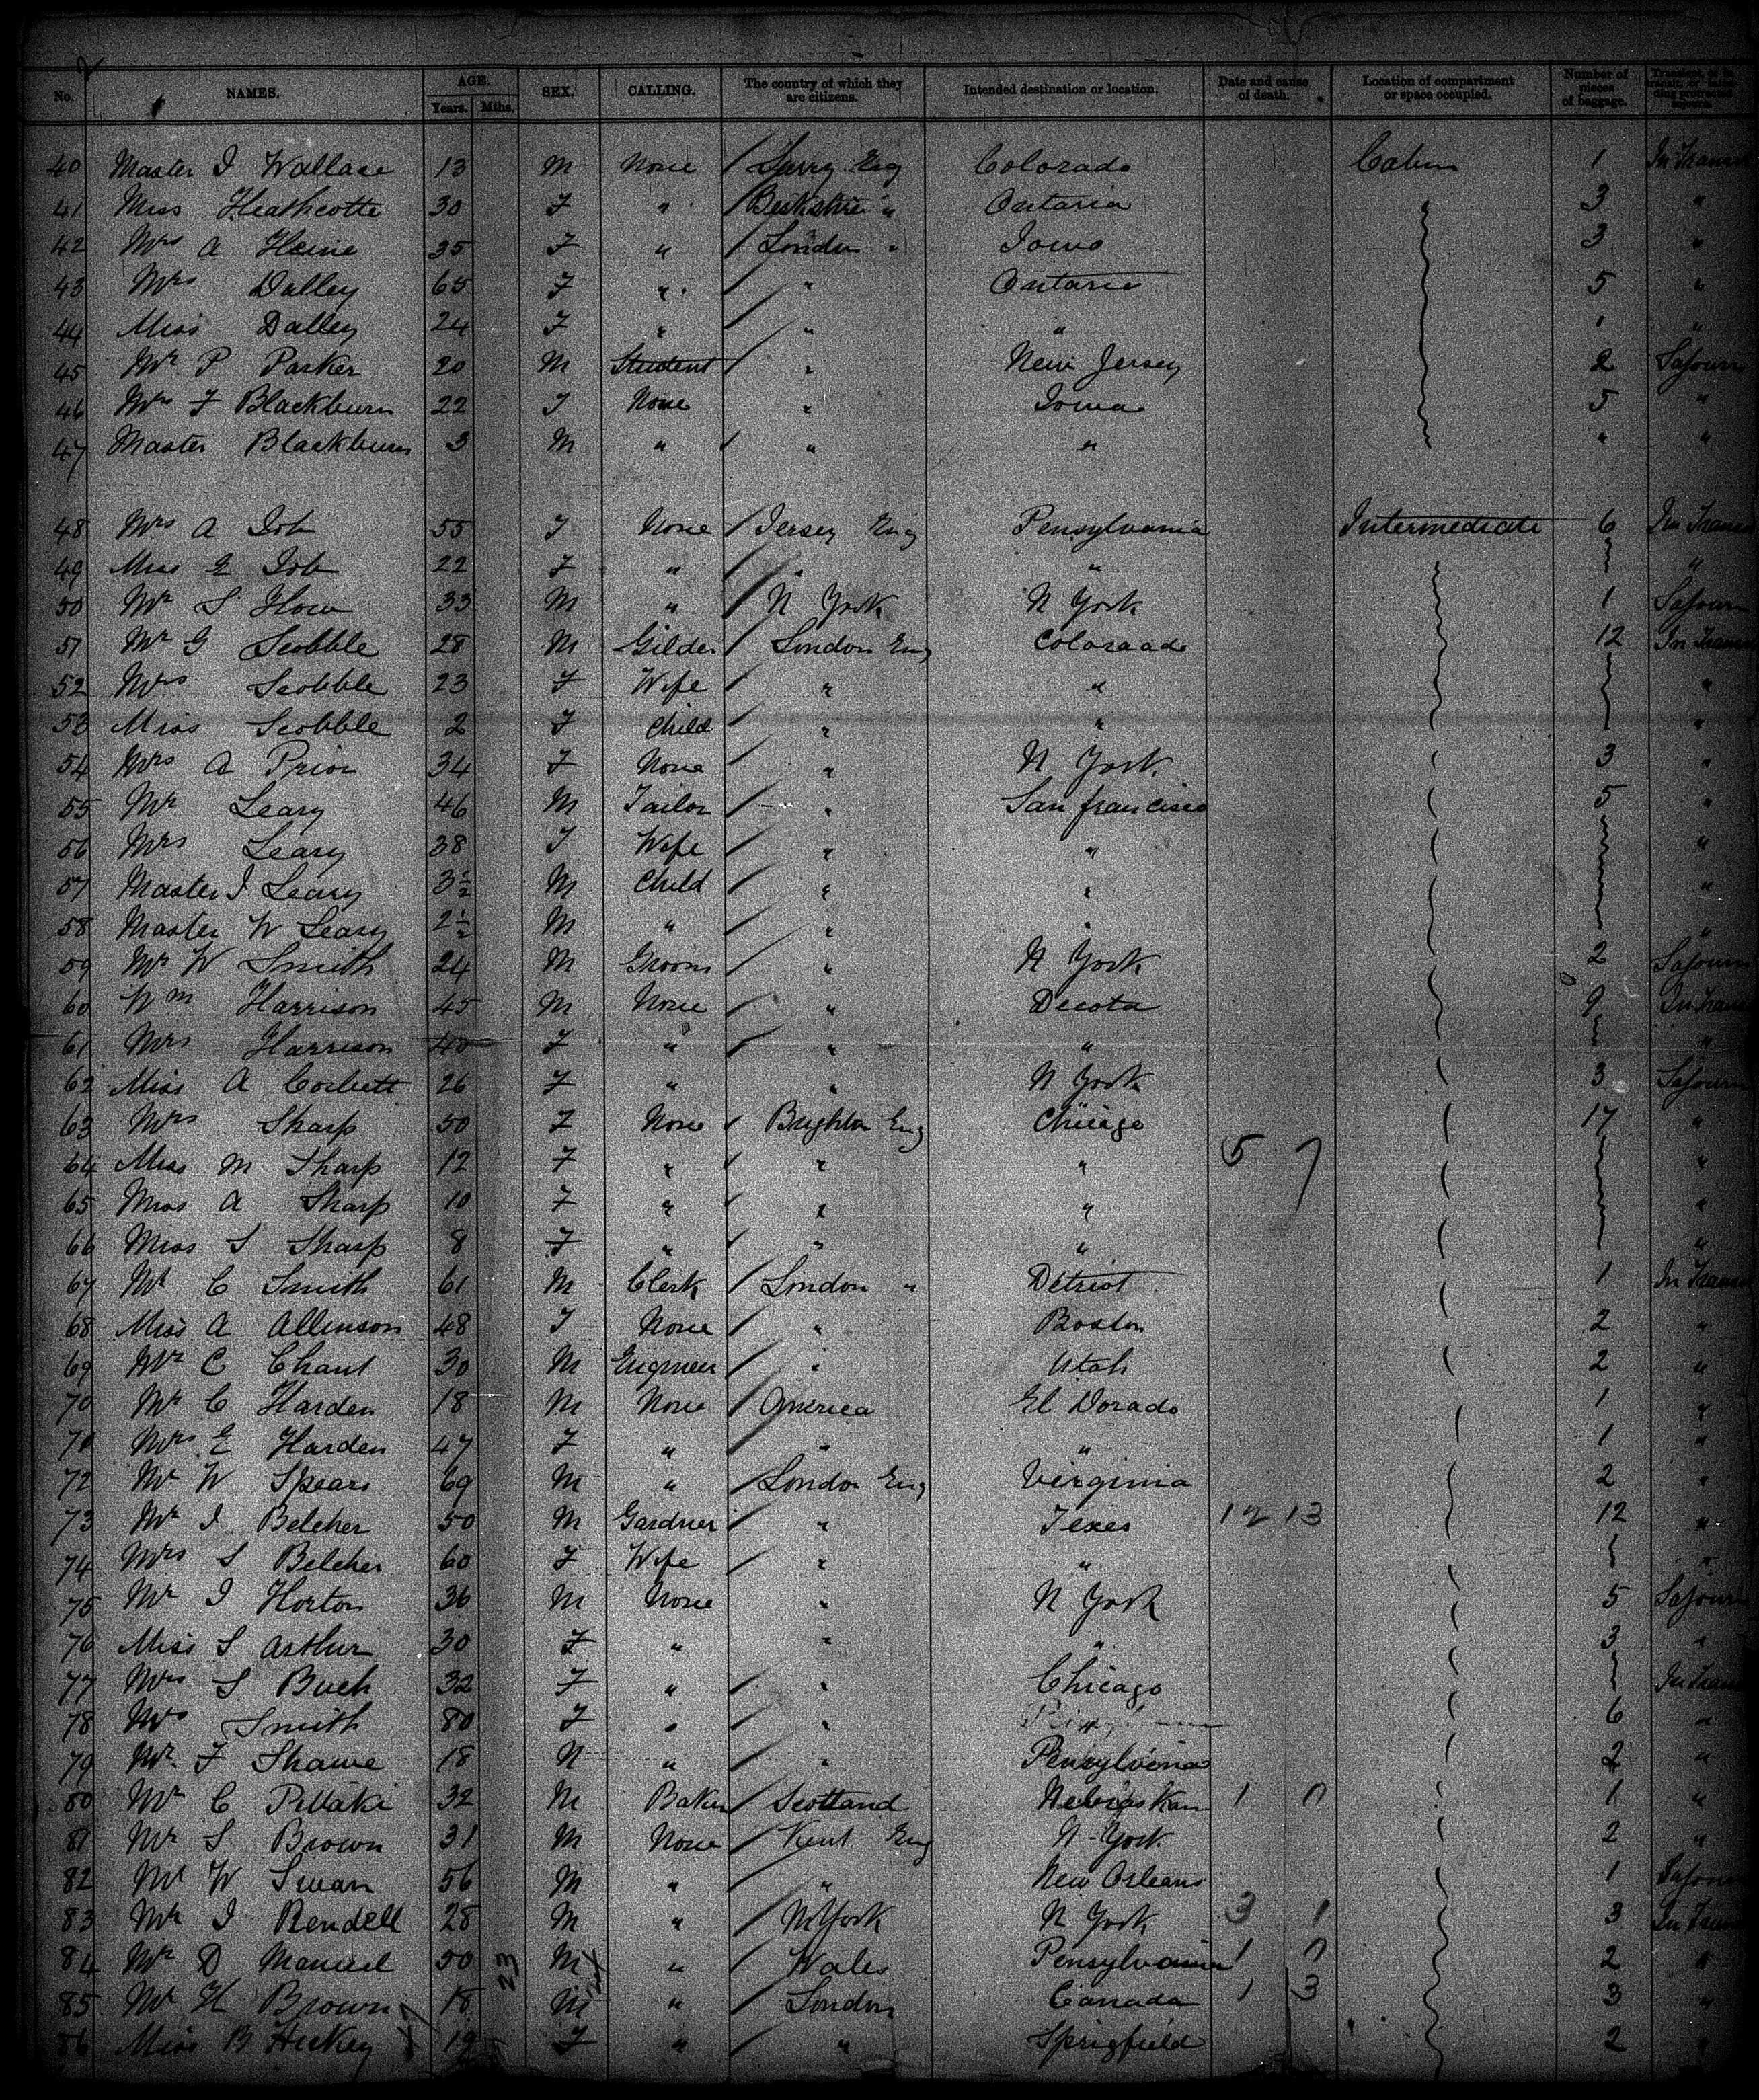 No. NAMES. AGE. Years. Mths. SEX. CALLING. The country of which they are citizens. Intended destination or location. Date and cause of death. Location of compartment or space occupied. Number of pieces of baggage.
40 Master I Wallace 13 M None / Surry Eng Colorado Cabin 1 In Transit
41 Miss Heathcotte 30 F " / Berkshire " Ontario 3 "
42 Mrs A Heine 35 F " / London " Iowa 3 "
43 Mrs Dalley 65 F " / " Ontario 5 "
44 Miss Dalley 24 F " / " " " "
45 Mr P Parker 20 M Student / " New Jersey 2 Sojourn
46 Mrs F Blackburn 22 F None / " Iowa 5 "
47 Master Blackburn 3 M " / " " " "
48 Mrs A Job 55 F None / Jersey Eng Pensylvania Intermediate 6 In Transit
49 Miss E Job 22 F " / " " "
50 Mr S How 33 M " / N York N York 1 Sojourn
51 Mr G Scobble 28 M Gilder / London Eng Coloraado 12 In Transit
52 Mrs Scobble 23 F Wife / " " "
53 Miss Scobble 2 F Child / " " "
54 Mrs A Prior 34 F None / " N York 3 "
55 Mr Leary 46 M Tailor / " San francisco 5 "
56 Mrs Leary 38 F Wife / " " "
57 Master J Leary 3½ M Child / " " "
58 Master W Leary 2½ M " / " " "
59 Mr W Smith 24 M Groom / " N York 2 Sojourn
60 Wm Harrison 45 M None / " Decota 9 In Transit
61 Mrs Harrison 40 F " / " " "
62 Miss A Corbett 26 F " " N York 3 Sojourn
63 Mrs Sharp 50 F None / Brighton Eng Chicago 17 "
64 Miss M Sharp 12 F " / " " 5 7 "
65 Miss A Sharp 10 F " / " " "
66 Miss S Sharp 8 F " / " " "
67 Mr C Smith 61 M Clerk / London " Detriot 1 In Transit
68 Miss A Allinson 48 F None / " Boston 2 "
69 Mr C Chant 30 M Engineer / " Utah 2 "
70 Mr C Harden 18 M None / America El Dorado 1 "
71 Mrs E Harden 47 F " / " " 1 "
72 Mr W Spears 69 M " / London Eng Virginia 2 "
73 Mr I Belcher 50 M Gardner / " Texes 12 13 12 "
74 Mrs S Belcher 60 F Wife / " " "
75 Mr I Horton 36 M None " N York 5 Sojourn
76 Miss S Arthur 30 F " / " " 3 "
77 Mrs S Buch 32 F " / " Chicago In Transit
78 Mrs Smith 80 F " / " 6 "
79 Mr F Shawe 18 M " / " Pensylvenia 2 "
80 Mr C Pittaki 32 M Baker / Scotland Nebraskan 1 0 1 "
81 Mr S Brown 31 M None / Kent Eng N York 2 "
82 Mr W Swan 56 M " / " New Orleans 1 Sojourn
83 Mr I Rendell 28 M " / N York N York 3 1 3 In Transit
84 Mr D Manuel 50 M " / Wales Pensylvania 1 0 2 "
85 Mr H Brown 18 M " / London Canada 1 3 3 "
86 Miss B Hickey 19 F " " Sprigfield 2 "